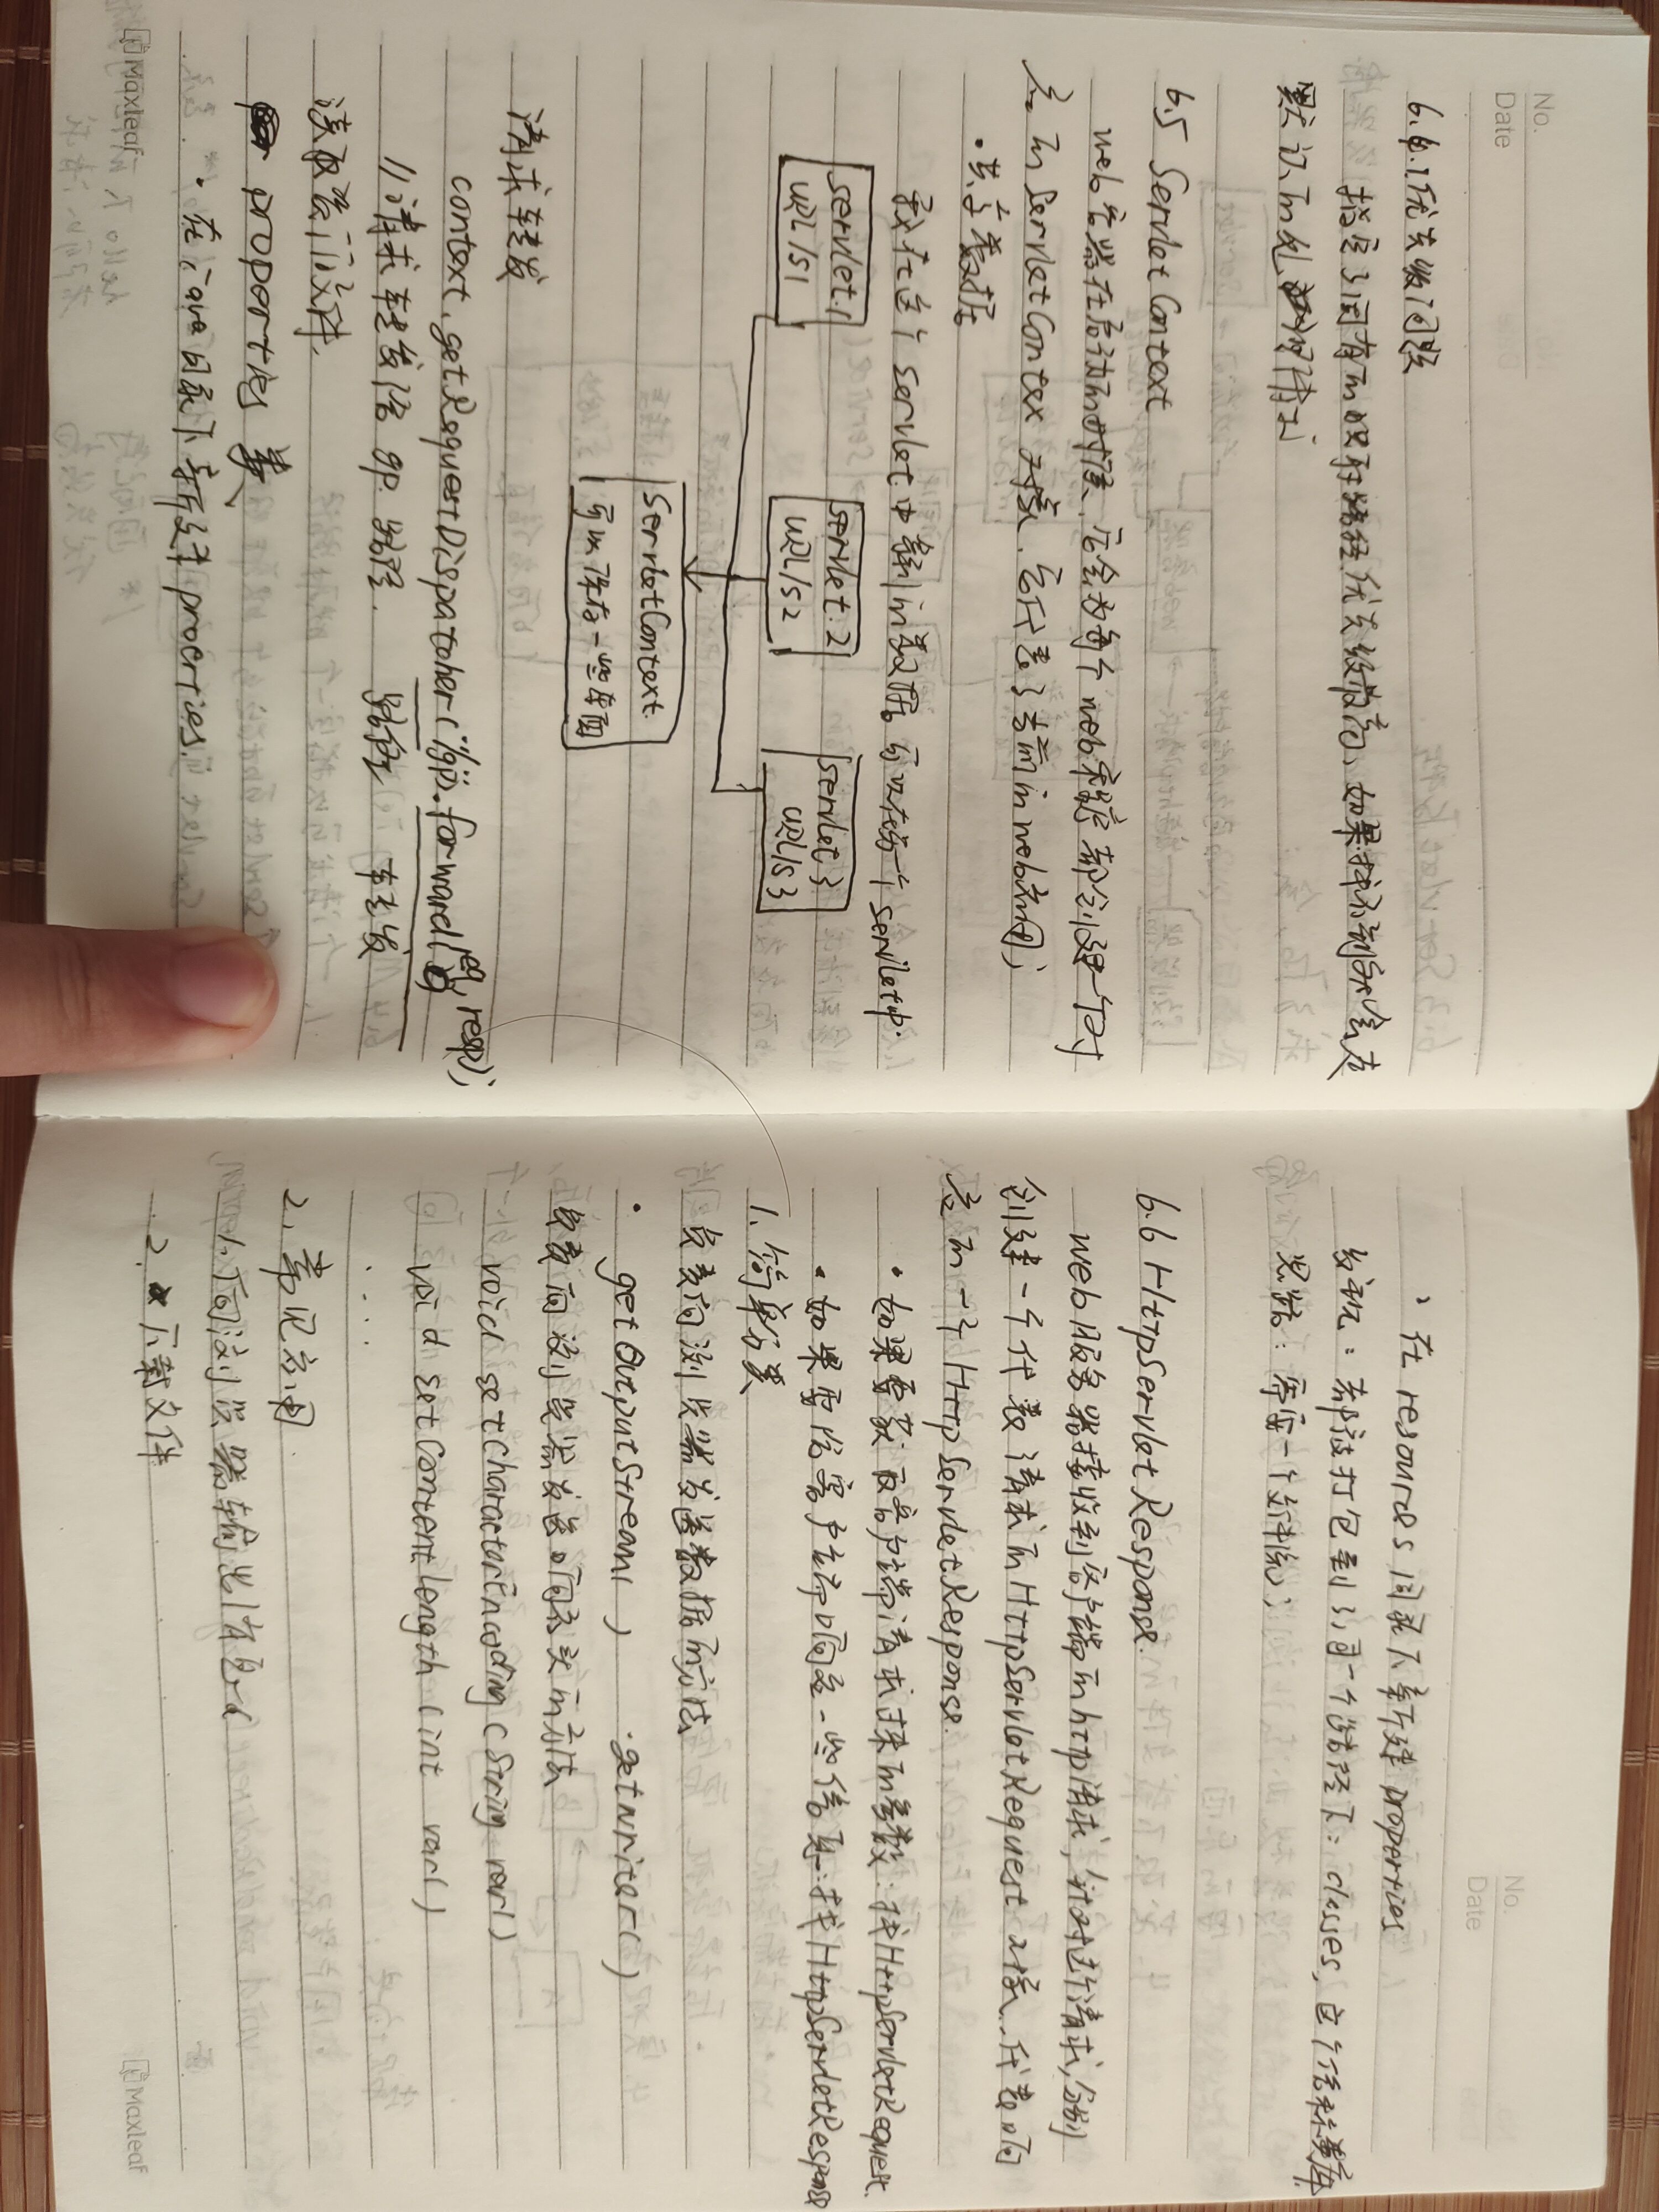 No.
Date
6.6.1优先级问题
指定了固有的映射路径优先级最高,如果找不到就会走
默认的处理请求;
6.5 ServletContext
web容器在启动的时候,它会为每个web程序都创建一个对
应的ServletContex 对象,它代表了当前的web应用;
·共享数据
我在这个servlet中保存的数据,可以在另一个servlet中.
servlet.1
URL/s1
servlet.2
URL/s2
servlet3
URL/s3
ServletContext.
可以保存一些东西
请求转发
context.getRequestDispatcher("/gp").forward(req,resp);
//请求转发给gp路径. 路径 转发
读取资源文件.
properties 类
·在java目录下新建properties
Maxleaf
No.
Date
·在resources目录下新建properties
发现:都被打包到了同一个路径下:classes,
思路:需要一个文件流;
6.6 HttpServletResponse.
web服务器接收到客户端的http请求,针对这个请求,分别
创建一个代表请求的HttpServletRequest对象,代表响
应的一个HttpServletResponse.
·如果要获取客户端请求过来的参数:找HttpServletRequest.
·如果要给客户端响应一些信息:找HttpServletResponse
1.简单分类
负责向浏览器发送数据的方法
·getOutputStream() ·getWriter()
负责向浏览器发送响应头的方法
void setCharacterEncoding(String var1)
void setContentLength(int var1)
....
2.常见应用.
1.向浏览器输出消息
2.下载文件
Maxleaf